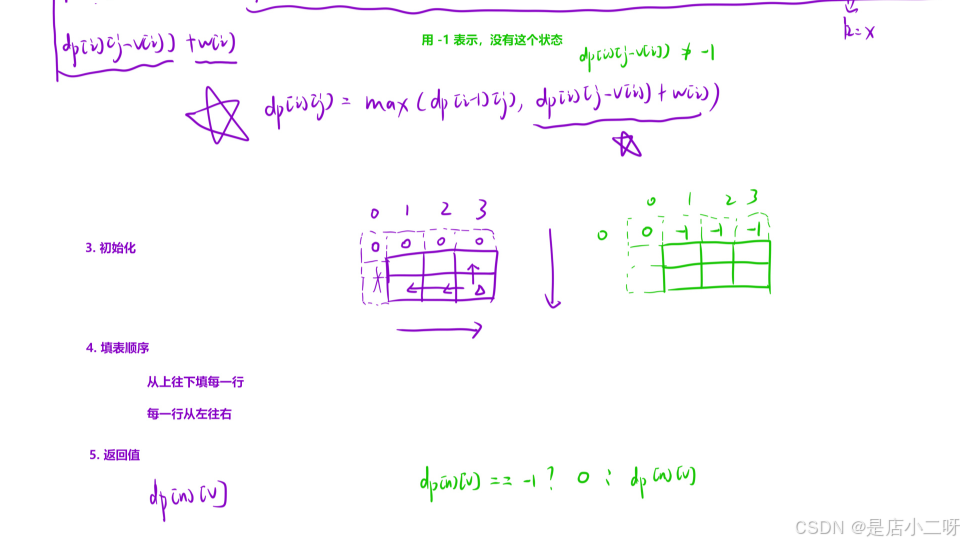 k=x
dp[i][j-v[i]] + w[i]
用 -1 表示，没有这个状态
dp[i][j-v[i]] ≠ -1
dp[i][j] = max(dp[i-1][j], dp[i][j-v[i]]+w[i])
0 1 2 3
0 0 0 0
3. 初始化
0 1 2 3
0 0 -1 -1 -1
4. 填表顺序
从上往下填每一行
每一行从左往右
5. 返回值
dp[n][V]
dp[n][V] == -1 ? 0 : dp[n][V]
CSDN @是店小二呀